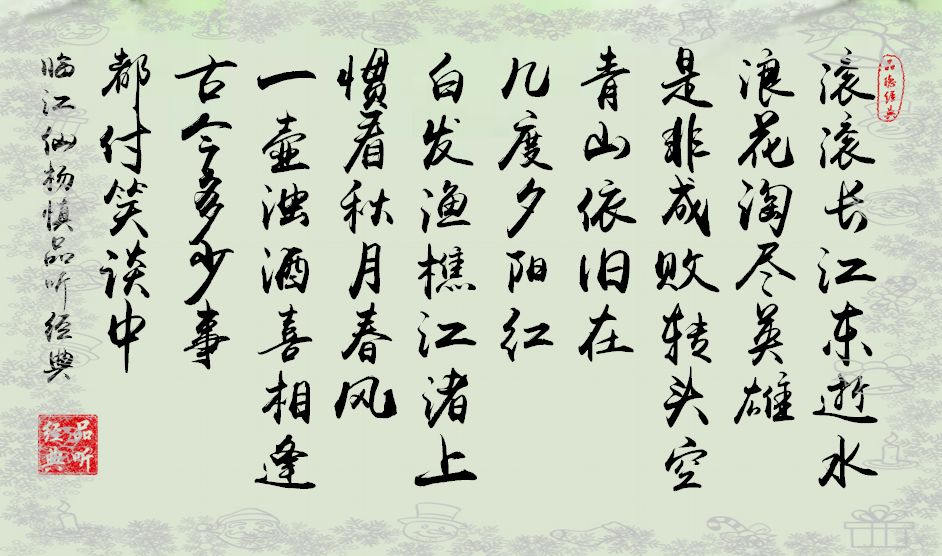 品听经典
滚滚长江东逝水
浪花淘尽英雄
是非成败转头空
青山依旧在
几度夕阳红
白发渔樵江渚上
惯看秋月春风
一壶浊酒喜相逢
古今多少事
都付笑谈中
临江仙杨慎品听经典
品听经典